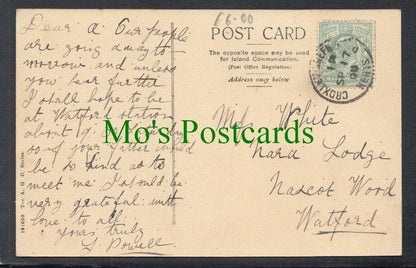 £6.00
POST CARD
The opposite space may be used
for Island Communication.
(Post Office Regulation).
Address only below.
CROXLEY GREEN
SP 17
08
Dear a. Our people
are going away to
morrow and unless
you hear further
I shall hope to be
at Watford station
about
so if your
be so kind as to
meet me I should be
very grateful with
love to all.
yours truly
S. Powell
Miss White
Lodge
Nascot Wood
Watford
Mo's Postcards
Series